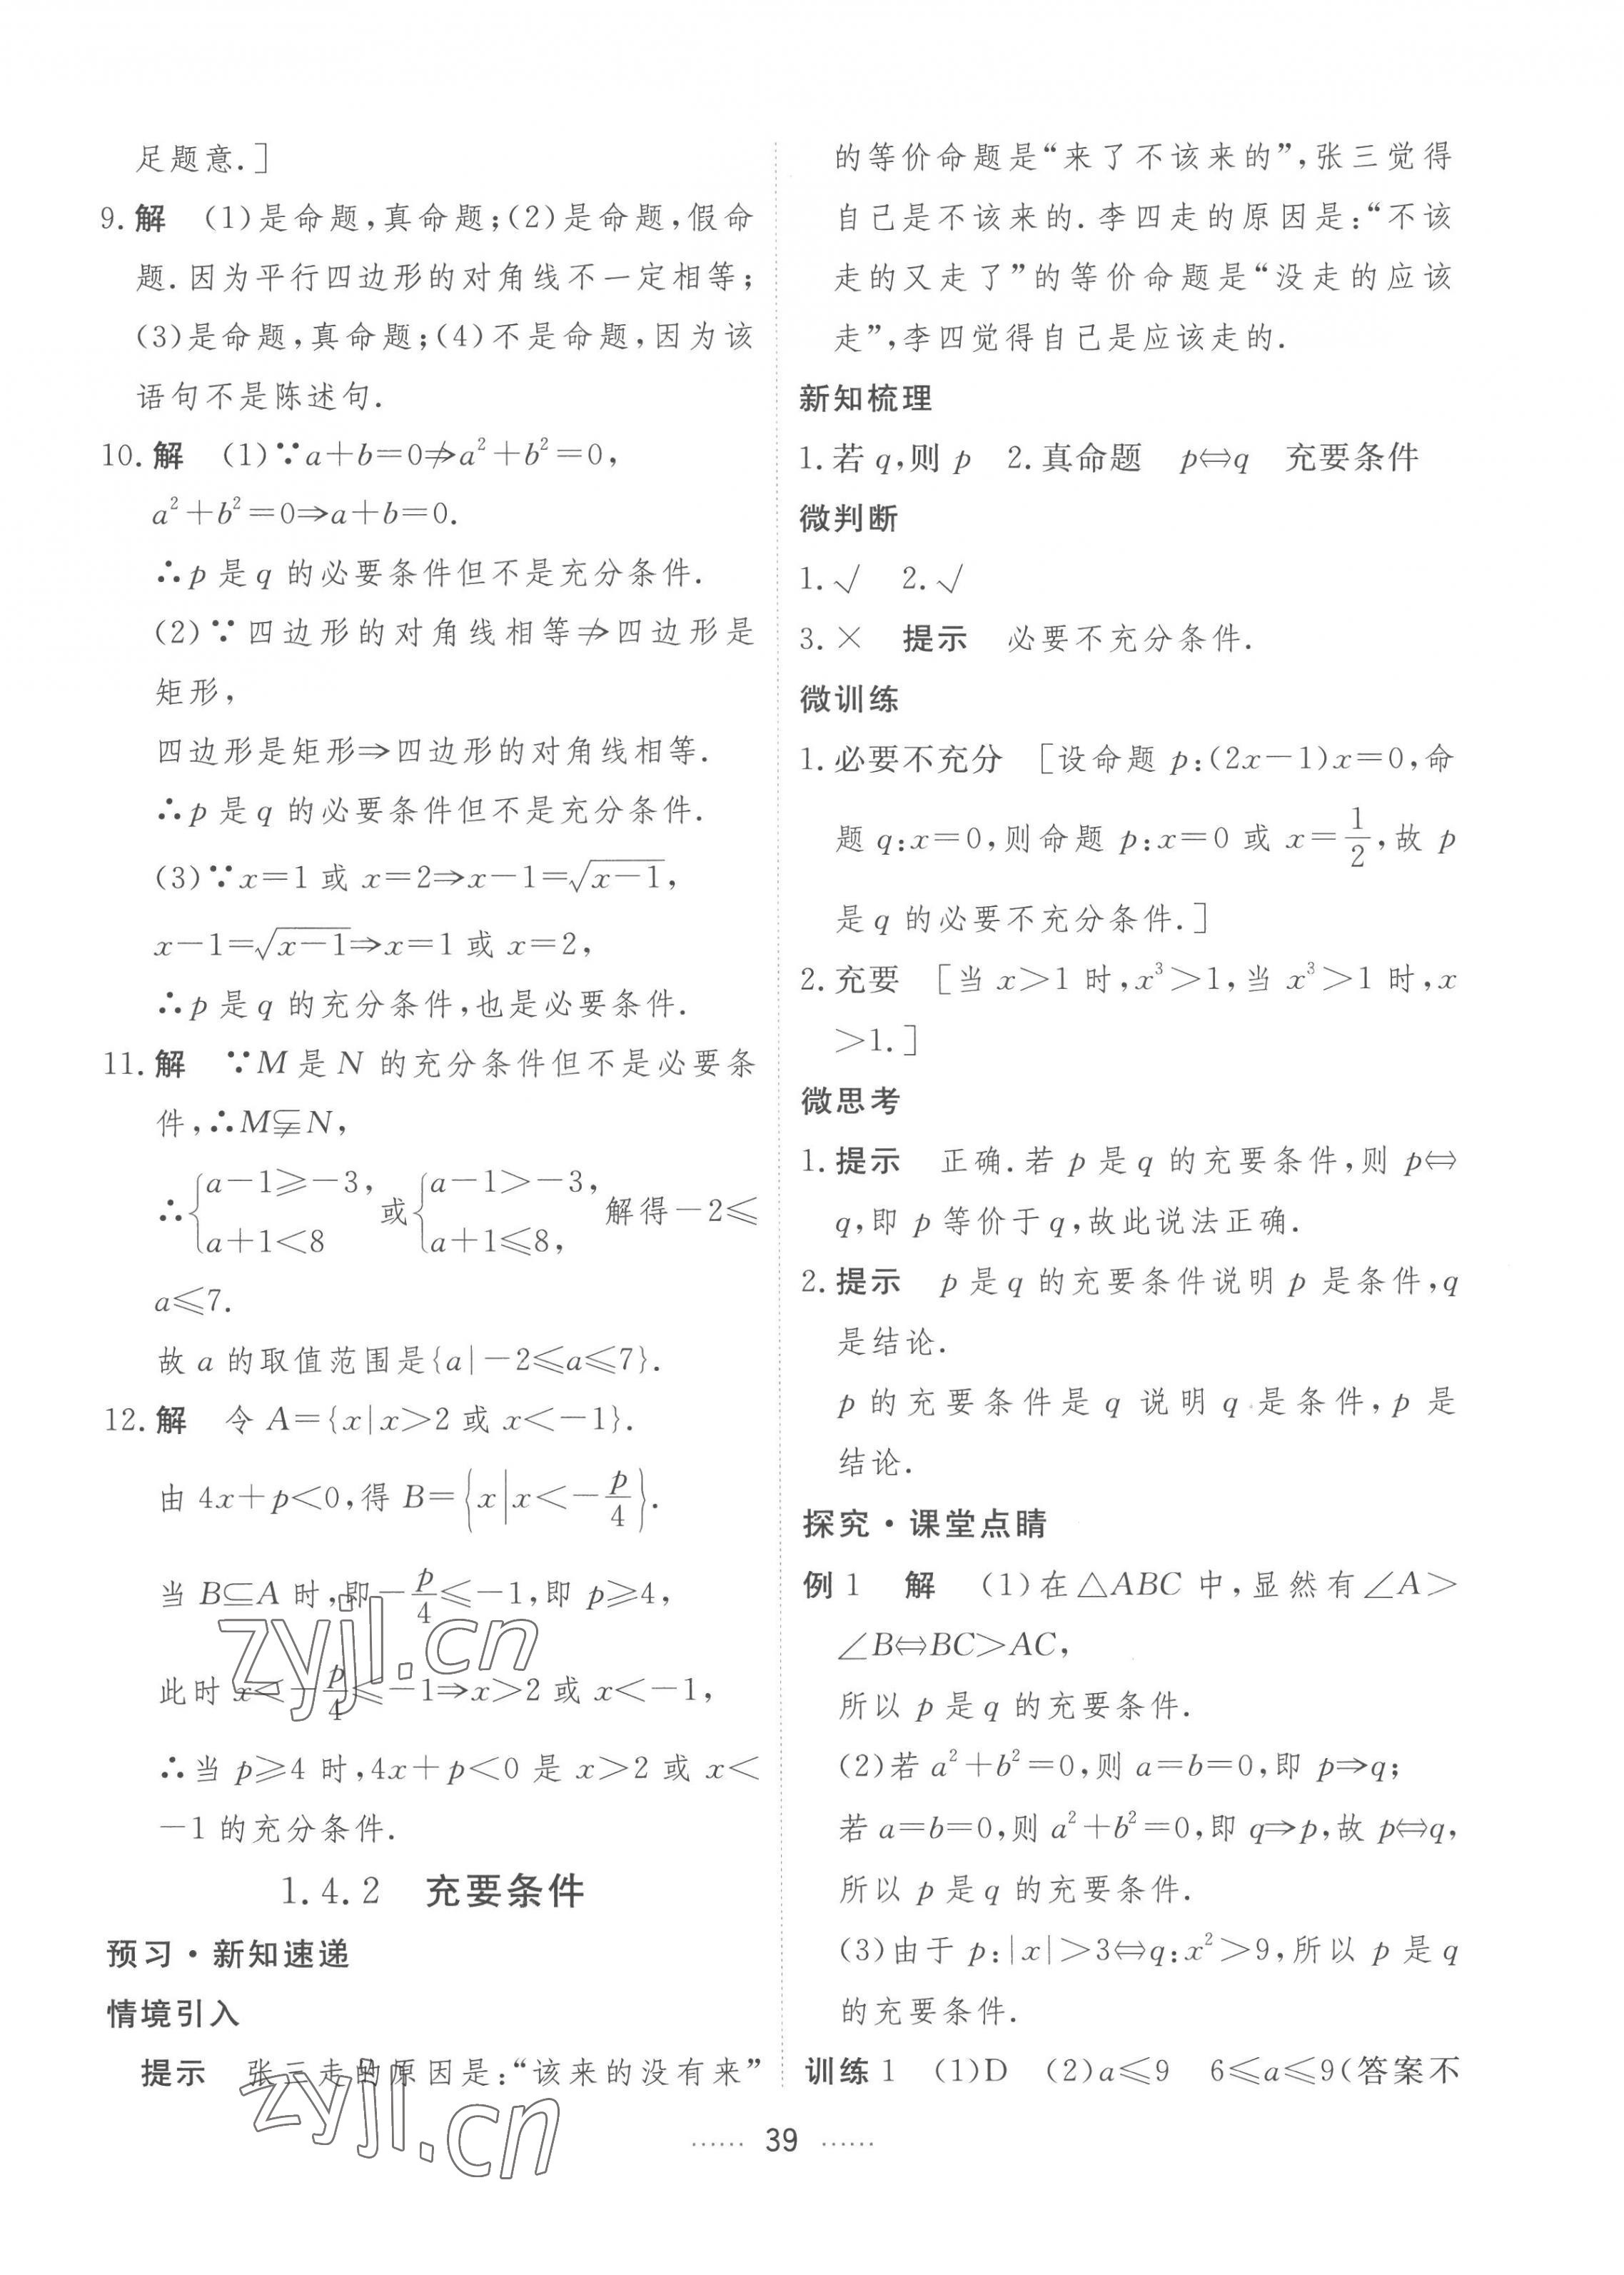 足题意.]
9.解 (1)是命题,真命题;(2)是命题,假命
题.因为平行四边形的对角线不一定相等;
(3)是命题,真命题;(4)不是命题,因为该
语句不是陈述句.
10.解 (1)∵a+b=0⇏a²+b²=0,
a²+b²=0⇒a+b=0.
∴p是q的必要条件但不是充分条件.
(2)∵四边形的对角线相等⇏四边形是
矩形,
四边形是矩形⇒四边形的对角线相等.
∴p是q的必要条件但不是充分条件.
(3)∵x=1或x=2⇒x-1=√(x-1),
x-1=√(x-1)⇒x=1或x=2,
∴p是q的充分条件,也是必要条件.
11.解 ∵M是N的充分条件但不是必要条
件,∴M⫋N,
∴{a-1≥-3, a+1<8 或{a-1>-3, a+1≤8, 解得-2≤
a≤7.
故a的取值范围是{a|-2≤a≤7}.
12.解 令A={x|x>2或x<-1}.
由4x+p<0,得B={x|x<-p/4}.
当B⊆A时,即-p/4≤-1,即p≥4,
此时x<-p/4≤-1⇒x>2或x<-1,
∴当p≥4时,4x+p<0是x>2或x<
-1的充分条件.
1.4.2 充要条件
预习·新知速递
情境引入
提示 张三走的原因是:“该来的没有来”
的等价命题是“来了不该来的”,张三觉得
自己是不该来的.李四走的原因是:“不该
走的又走了”的等价命题是“没走的应该
走”,李四觉得自己是应该走的.
新知梳理
1.若q,则p 2.真命题 p⇔q 充要条件
微判断
1.√ 2.√
3.× 提示 必要不充分条件.
微训练
1.必要不充分 [设命题p:(2x-1)x=0,命
题q:x=0,则命题p:x=0或x=1/2,故p
是q的必要不充分条件.]
2.充要 [当x>1时,x³>1,当x³>1时,x
>1.]
微思考
1.提示 正确.若p是q的充要条件,则p⇔
q,即p等价于q,故此说法正确.
2.提示 p是q的充要条件说明p是条件,q
是结论.
p的充要条件是q说明q是条件,p是
结论.
探究·课堂点睛
例1 解 (1)在△ABC中,显然有∠A>
∠B⇔BC>AC,
所以p是q的充要条件.
(2)若a²+b²=0,则a=b=0,即p⇒q;
若a=b=0,则a²+b²=0,即q⇒p,故p⇔q,
所以p是q的充要条件.
(3)由于p:|x|>3⇔q:x²>9,所以p是q
的充要条件.
训练1 (1)D (2)a≤9 6≤a≤9(答案不
zyjl.cn
zyjl.cn
…… 39 ……